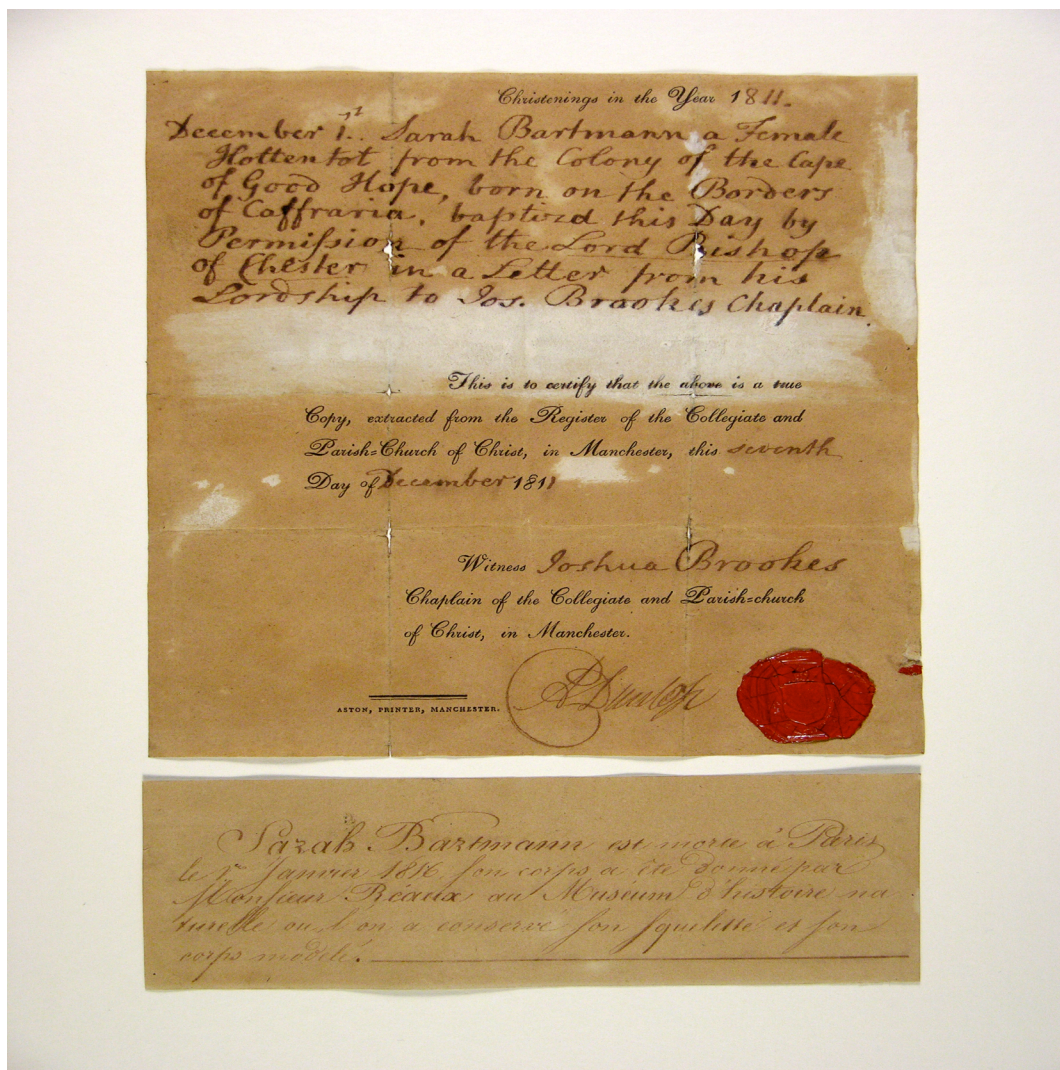 Christenings in the Year 1811.
December 1st. Sarah Bartmann a Female
Hottentot from the Colony of the Cape
of Good Hope, born on the Borders
of Caffraria, baptized this Day by
Permiſsion of the Lord Bishop
of Chester in a Letter from his
Lordship to Jos. Brookes Chaplain.
This is to certify that the above is a true
Copy, extracted from the Register of the Collegiate and
Parish=Church of Christ, in Manchester, this seventh
Day of December 1811
Witness Joshua Brookes
Chaplain of the Collegiate and Parish=church
of Christ, in Manchester.
Dunlop
ASTON, PRINTER, MANCHESTER.
Sarah Bartmann est morte à Paris
le 1er Janvier 1816 ſon corps a été donné par
Monsieur Réaux au Museum d'histoire na
turelle ou l'on a conservé ſon ſquilette et ſon
corps modelé.